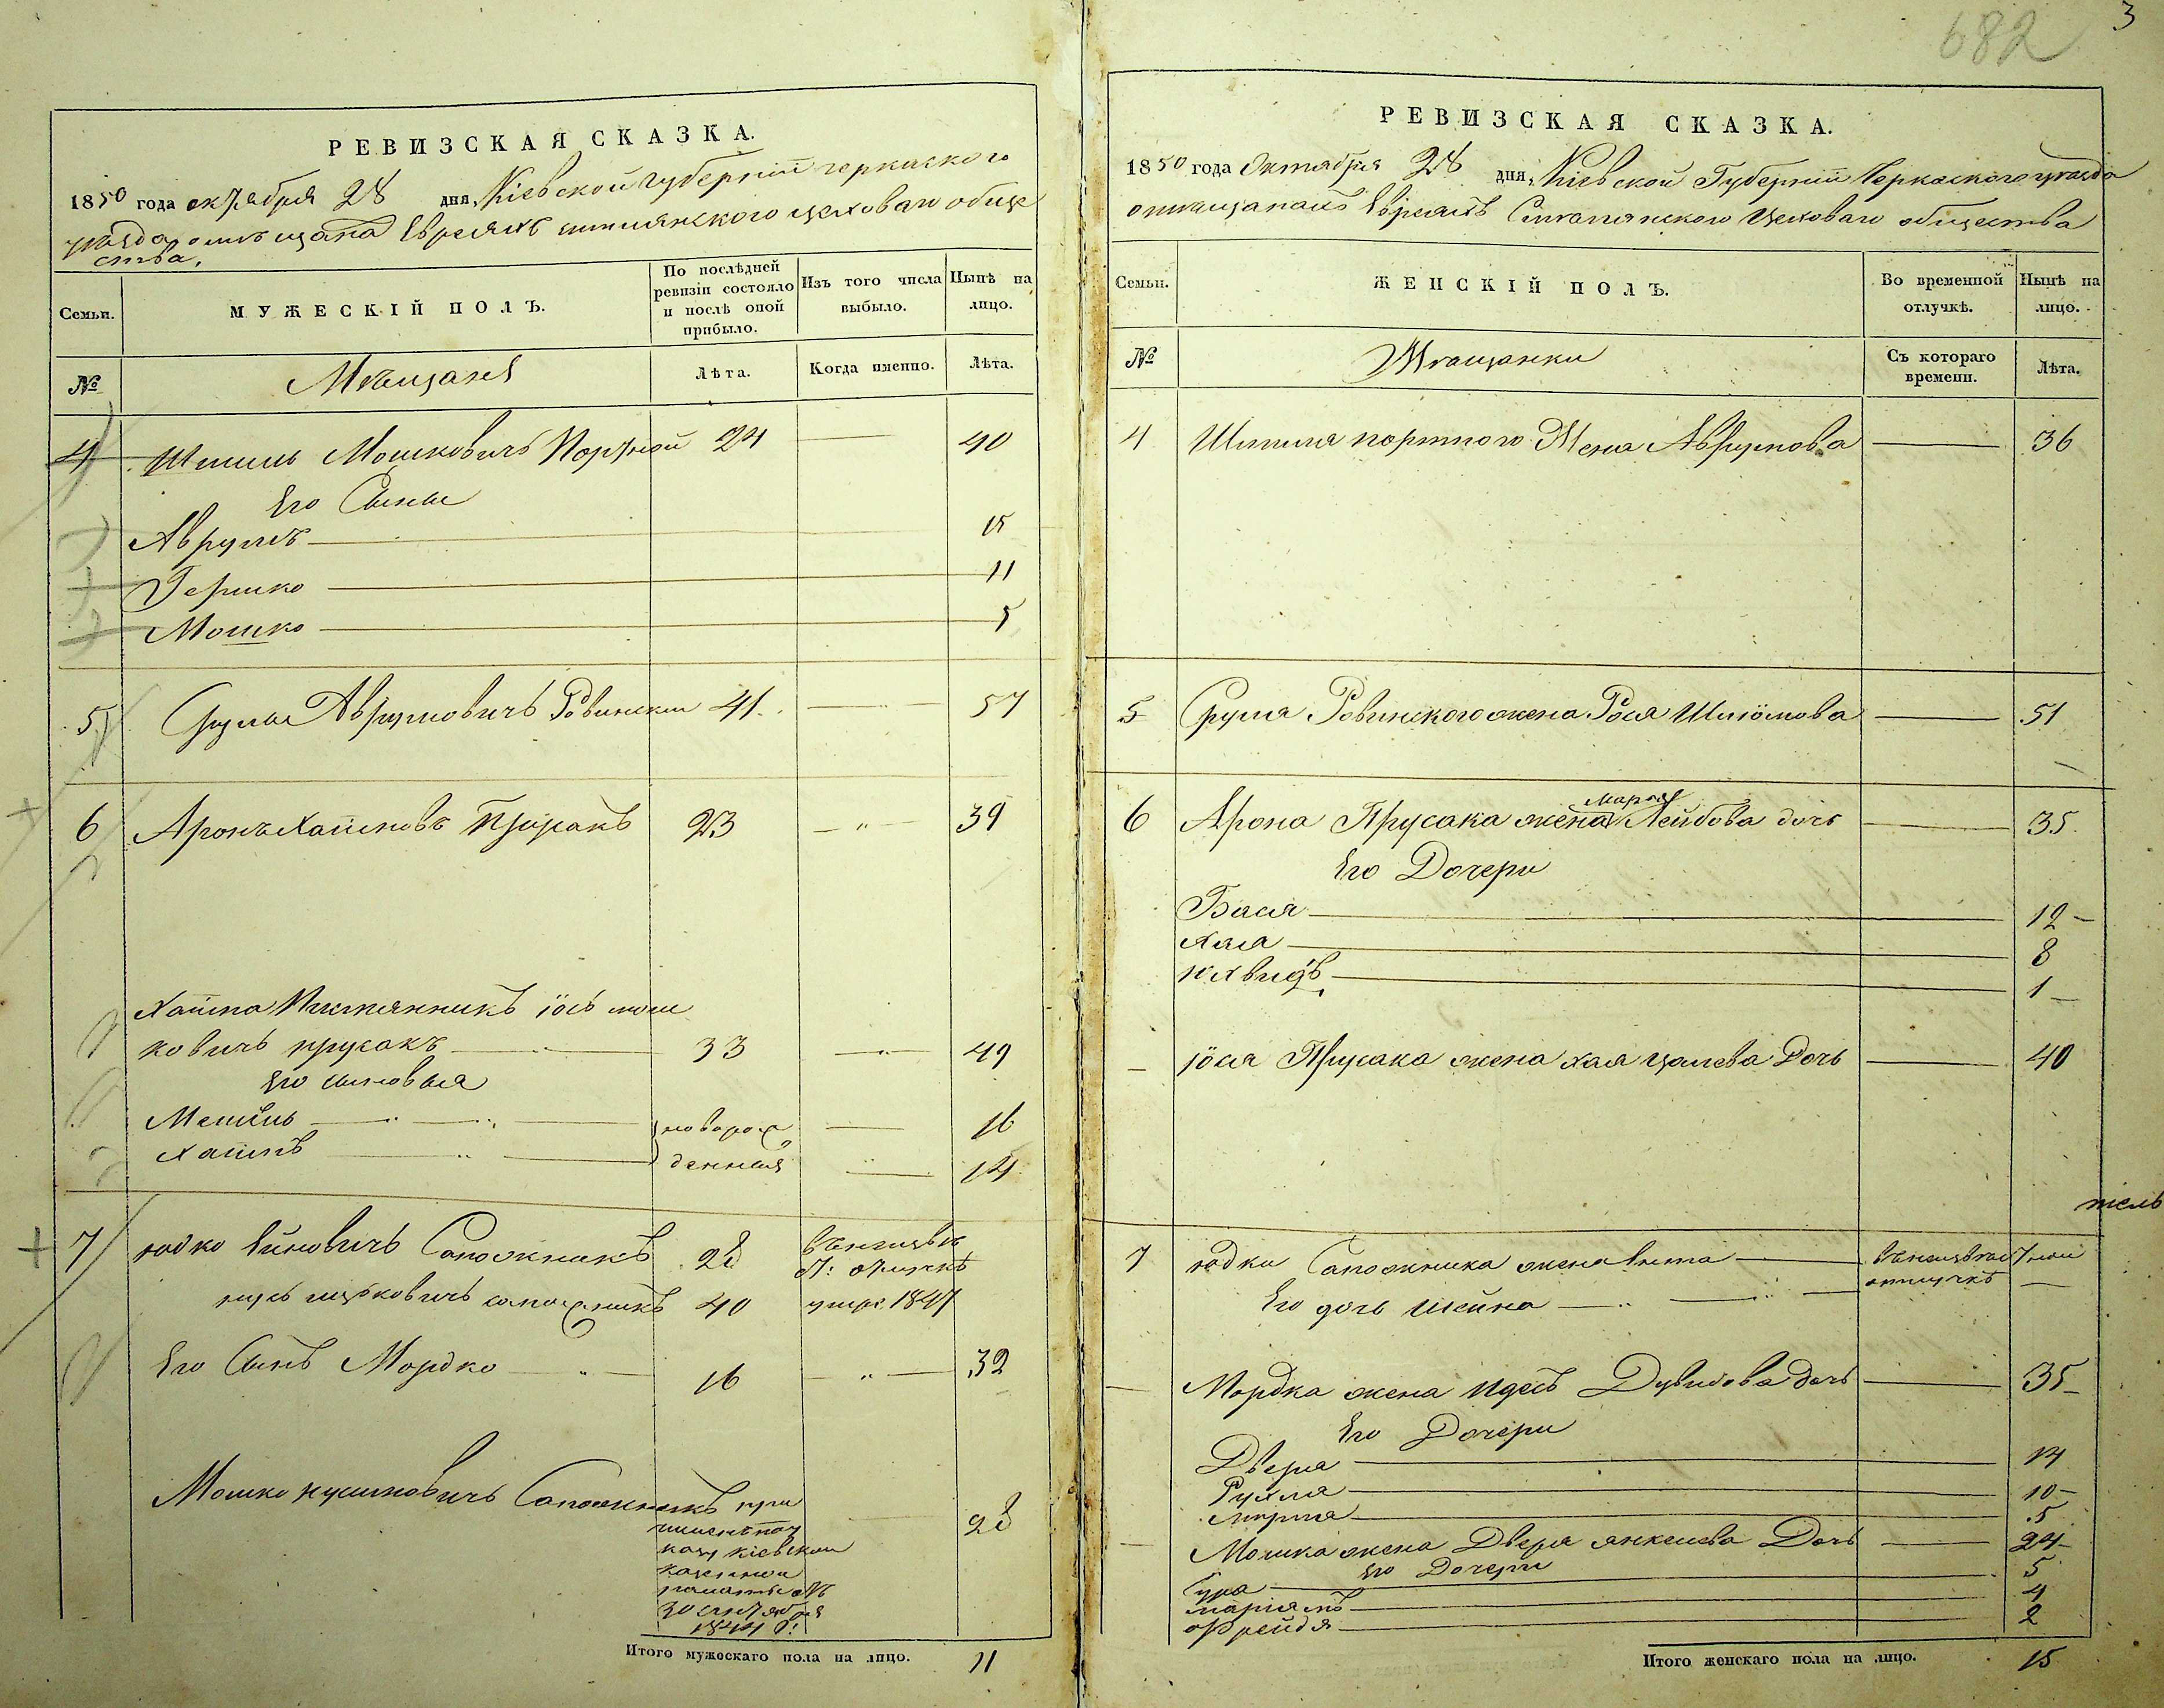 682
3
РЕВИЗСКАЯ СКАЗКА.
1850 года октября 28 дня, Кіевской губерніи черкаского
уѣзда о мѣщана Евреяхъ цеховаго обще
ства.
Семьи.
МУЖЕСКІЙ ПОЛЪ.
По послѣдней
ревизіи состояло
и послѣ оной
прибыло.
Изъ того числа
выбыло.
Нынѣ на
лицо.
№
Мѣщане
Лѣта.
Когда именно.
Лѣта.
4 Шмиль Мошковичъ Портной 24 — 40
Его Сыны
Аврумъ — 15
Гершко — 11
Мошко — 5
5 Сруль Аврумовичъ Ровински 41 — 57
6 Аронъ Хаимовъ Прусакъ 23 — 39
Хаима Іось мош
ковичъ прусакъ 33 — 49
Его сыновья
новорож 16
Хаимъ денныя 14
7 юдко Сапожникъ 28
сапожникъ 40 умре 1847
Его Сынъ Мордко 16 — 32
Мошко Сапожникъ при
28
казу кіевской
казенной
палаты отъ
30 сентября
1844 г:
Итого мужескаго пола на лицо. 11
РЕВИЗСКАЯ СКАЗКА.
1850 года Октября 28 дня, Кіевской Губерніи Черкаского уѣзда
Евреяхъ Цеховаго общества
Семьи.
ЖЕНСКІЙ ПОЛЪ.
Во временной
отлучкѣ.
Нынѣ на
лицо.
№
Мѣщанки
Съ котораго
времени.
Лѣта.
4 Шмиля портного Жена Аврумова — 36
5 Сруля Ровинского жена Рося Шліомова — 51
6 Арона Прусака жена Марья Лейбова дочь — 35
Его Дочери
Бася — 12
Хая — 8
— 1
Іося Прусака жена хая цалева Дочь — 40
7 юдки Сапожника жена
отлучкѣ
Его дочь шейна —
Мордка жена Идесъ Дувидова дочь — 35
Его Дочери
Двера — 14
Рухля — 10
— 5
Мошка жена Двера янкелева Дочь — 24
Его Дочери
Сура — 5
маріямъ — 4
Фрейда — 2
Итого женскаго пола на лицо. 15